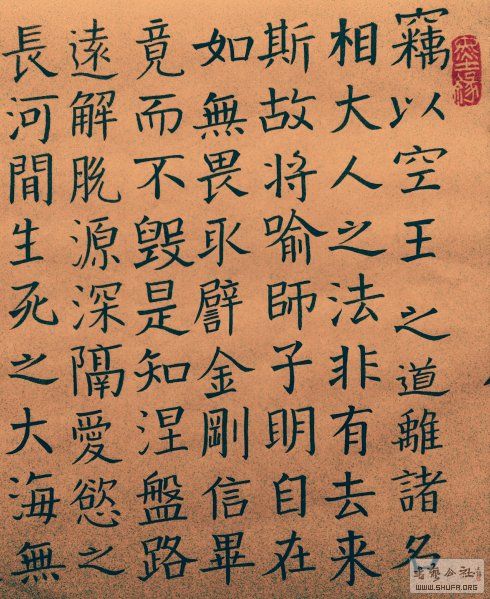 竊以空王之道離諸名
相大人之法非有去来
斯故将喻師子明自在
如無畏取譬金剛信畢
竟而不毀是知涅盤路
遠解脱源深隔愛慾之
長河間生死之大海無
WWW.SHUFA.ORG